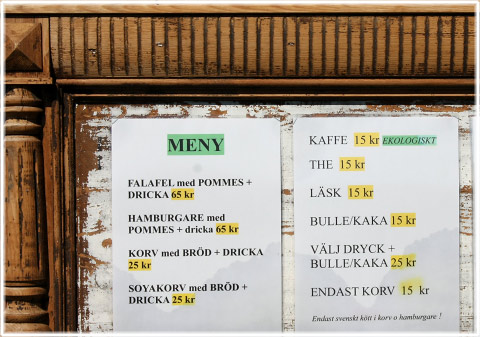 MENY
FALAFEL med POMMES +
DRICKA 65 kr
HAMBURGARE med
POMMES + dricka 65 kr
KORV med BRÖD + DRICKA
25 kr
SOYAKORV med BRÖD +
DRICKA 25 kr
KAFFE 15 kr EKOLOGISKT
THE 15 kr
LÄSK 15 kr
BULLE/KAKA 15 kr
VÄLJ DRYCK +
BULLE/KAKA 25 kr
ENDAST KORV 15 kr
Endast svenskt kött i korv o hamburgare !